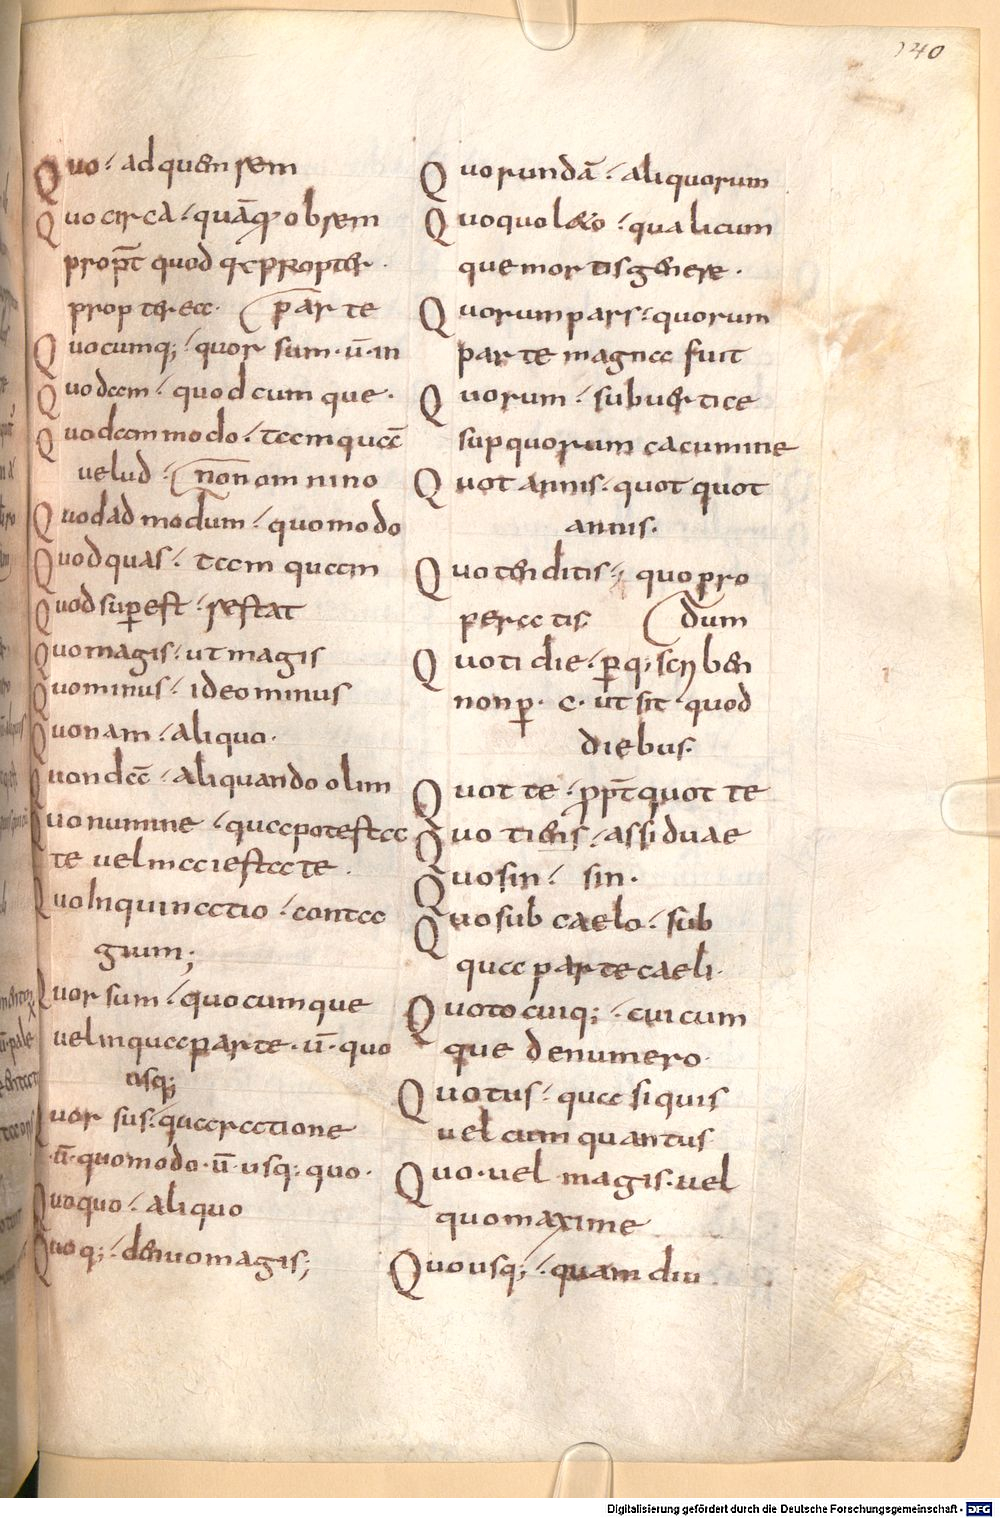 140
Quo ⁒ ad quem rem
Quocirca ⁒ quāq; ob rem
prop̄t quod qcpropter ·
propterea · parte
Quocumq; ⁒ quorsum · ū · in
Quodam ⁒ quodcumque ·
Quodammodo ⁒ tamquā
velud · nōn omnino
Quodadmodum ⁒ quomodo
Quodquas ⁒ tam quam
Quod suꝑest ⁒ restat
Quomagis ⁒ ut magis
Quominus ⁒ ideo minus
Quonam ⁒ aliquo ·
Quondā ⁒ aliquando olim
Quo numine ⁒ qua potesta
te vel maiestate ·
Quoinquinatio ⁒ conta
gium;
Quorsum ⁒ quocumque
vel in qua parte · ū · quo
usq;
Quorsus ⁒ qua ratione
· ū · quomodo · ū · usq; quo ·
Quoquo ⁒ aliquo
Quoq; ⁒ denuo magis;
Quorundā ⁒ aliquorum
Quoquo læto ⁒ qualicum
que mortis genere ·
Quorum pars ⁒ quorum
parte magna fuit
Quorum ⁒ sub vertice
sup quorum cacumine
Quot annis ⁒ quot quot
annis ·
Quo tenditis ⁒ quo pro
peratis dum
Quotidie ⁒ ꝑ q; scriben
non ꝑ · c · ut sit · quod
diebus ·
Quot te ⁒ pp̄t quot te
Quotiens ⁒ assiduae
Quosin ⁒ sin ·
Quo sub caelo ⁒ sub
qua parte caeli ·
Quoto cuiq; ⁒ cui cum
que de numero ·
Quotus ⁒ qua si quis
vel cum quantus
Quo · vel magis · vel
quo maxime
Quousq; ⁒ quam diu ·
Digitalisierung gefördert durch die Deutsche Forschungsgemeinschaft - DFG